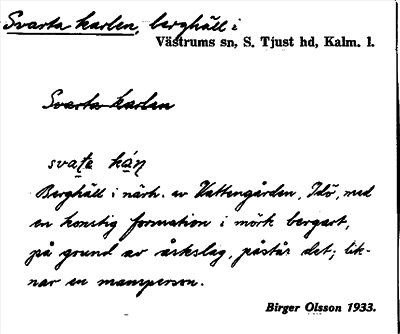 Svarta karlen, berghäll i
Västrums sn, S. Tjust hd, Kalm. l.
Svarta karlen
svaṭa káṇ
Berghäll i närh. av Vattengården, Idö, med
en konstig formation i mörk bergart,
på grund av åskslag, påstår det; lik-
nar en mansperson.
Birger Olsson 1933.